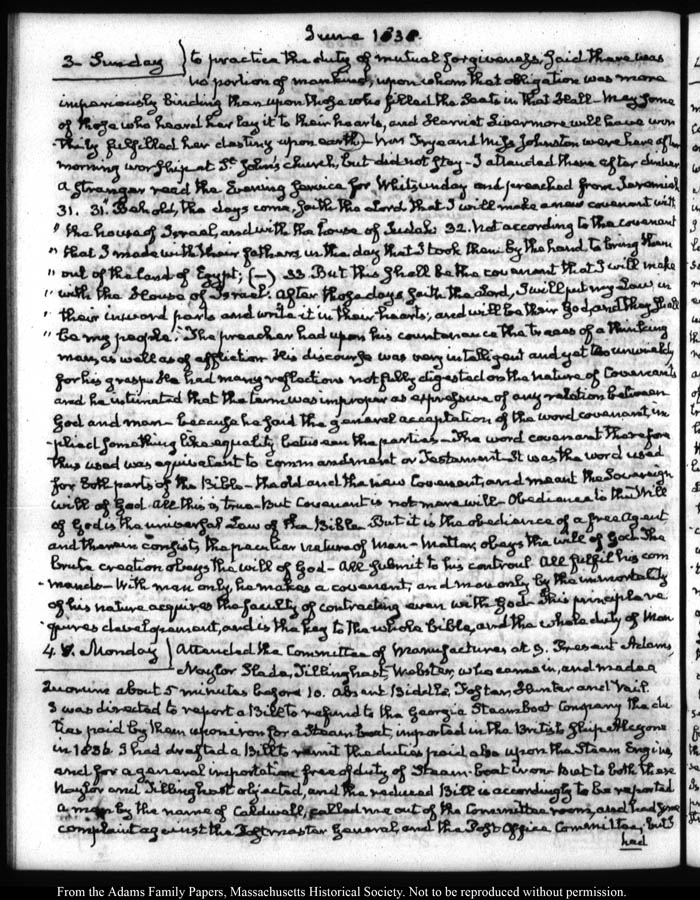 June 1838.
3. Sunday } to practice the duty of mutual forgiveness, said there was
no portion of mankind, upon whom that obligation was more
imperiously binding than upon those who filled the Seats in that Hall — May some
of those who heard her lay it to their hearts, and Harriet Livermore will have wor
thily fulfilled her destiny upon earth — Mrs Frye and Miss Johnston were here after
morning worship at St John's church, but did not stay — I attended there after dinner
A stranger read the Evening Service for Whitsunday and preached from Jeremiah
31. 31. Behold, the days come, saith the Lord that I will make a new covenant with
" the house of Israel, and with the house of Judah: 32. Not according to the covenant
" that I made with their fathers in the day that I took them by the hand to bring them
" out of the land of Egypt; (—) 33 But this shall be the covenant that I will make
" with the House of Israel: After those days saith the Lord, I will put my Law in
" their inward parts and write it in their hearts; and will be their God, and they shall
" be my people." The preacher had upon his countenance the traces of a thinking
man, as well as of affliction His discourse was very intelligent and yet too unwieldy
for his grasp. He had many reflections not fully digested on the nature of Covenants
and he intimated that the term was improper as expressive of any relation between
God and man — because he said the general acceptation of the word covenant, im
plied something like equality between the parties — The word covenant therefore
thus used was equivalent to commandment or Testament — It was the word used
for both parts of the Bible — the old and the new Covenant, and meant the Sovereign
will of God. All this is true — but Covenant is not mere will — Obedience to the Will
of God is the universal Law of the Bible. But it is the obedience of a free Agent
and therein consists the peculiar nature of Man — Matter, obeys the will of God. The
brute creation obeys the will of God — All submit to his controul All fulfil his com
mands — With man only, he makes a covenant, and man only by the immortality
of his nature acquires the faculty of contracting even with God. This principle re
quires development, and is the key to the whole Bible, and the whole duty of Man
4. Monday } Attended the Committee of Manufactures at 9. Present Adams,
Naylor Slade, Tillinghast, Webster, who came in, and made a
Quorum about 5 minutes before 10. Absent Biddle, Foster, Hunter and Vail.
I was directed to report a Bill to refund to the Georgia Steam Boat Company the du
ties paid by them upon iron for a Steam boat, imported in the British Ship Alcyone
in 1836 I had drafted a Bill to remit the duties paid also upon the Steam Engine,
and for a general importation free of duty of Steam-boat iron — but to both these
Naylor and Tillinghast objected, and the reduced Bill is accordingly to be reported
A man by the name of Caldwell, called me out of the Committee room, and had some
complaint against the Postmaster General, and the Post Office Committee, but I
had
From the Adams Family Papers, Massachusetts Historical Society. Not to be reproduced without permission.